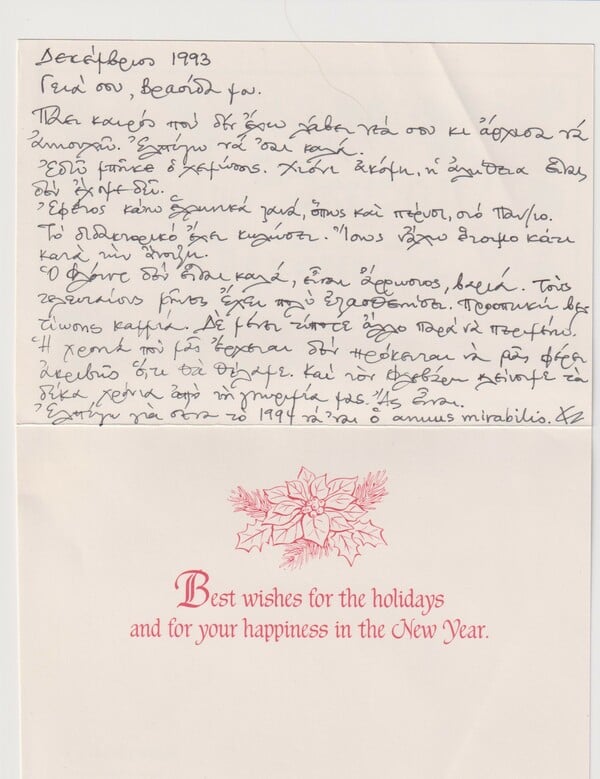 Δεκέμβριος 1993
Γειά σου, Βρασίδα μου.
Πάει καιρός πού δέν ἔχω λάβει νέα σου κι ἄρχισα νά
ἀνησυχῶ. Ἐλπίζω νά 'σαι καλά.
Ἐδῶ μπῆκε ὁ χειμώνας. Χιόνι ἀκόμη, ἡ ἀλήθεια εἶναι,
δέν ἔχομε δεῖ.
Ἐφέτος κάνω ἑλληνικά ξανά, ὅπως καί πέρυσι, στό Παν/μιο.
Τό διδακτορικό ἔχει κυλήσει. Ἴσως νἄχω ἕτοιμο κάτι
κατά τήν ἄνοιξη.
Ὁ δέν εἶναι καλά, εἶναι ἄρρωστος, βαριά. Τούς
τελευταίους μῆνες ἔχει πολύ ἐξασθενήσει. Προοπτική βελ-
τίωσης καμμιά. Δέ μένει τίποτε ἄλλο παρά νά περιμένω.
Ἡ χρονιά πού μᾶς ἔρχεται δέν πρόκειται νά μᾶς φέρει
ἀκριβῶς ὅ,τι θά θέλαμε. Καί τόν Φλεβάρη κλείνομε τά
δέκα χρόνια ἀπό τή γνωριμία μας. Ἄς εἶναι.
Ἐλπίζω γιά σένα τό 1994 νά 'ναι ὁ annus mirabilis.
Best wishes for the holidays
and for your happiness in the New Year.